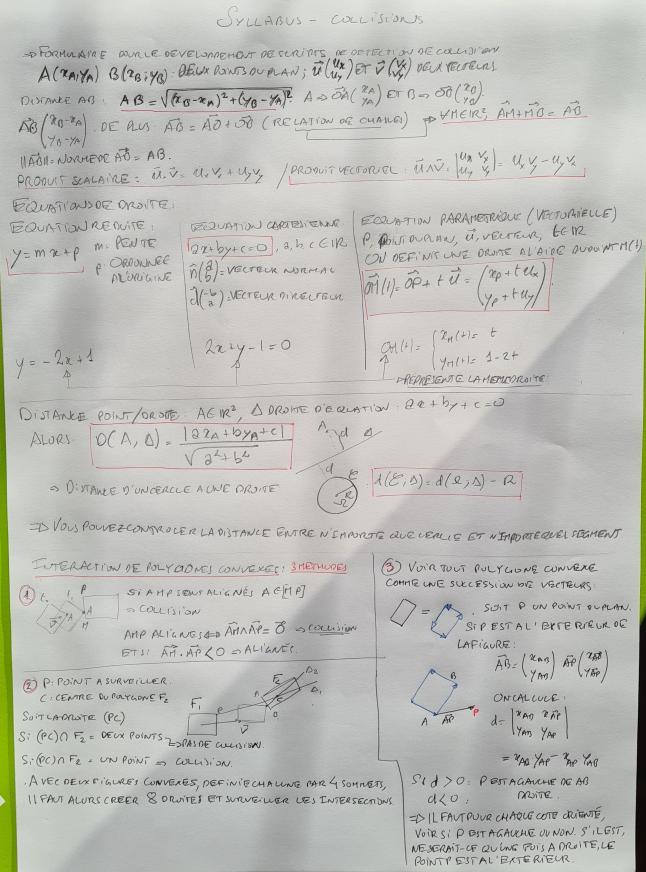 SYLLABUS - COLLISIONS
⇒ FORMULAIRE POUR LE DEVELOPPEMENT DE SCRIPTS DE DETECTION DE COLLISION
A(xA;yA) B(xB;yB): DEUX POINTS DU PLAN; u⃗(ux uy) ET v⃗(vx vy) DEUX VECTEURS
DISTANCE AB: AB = √((xB-xA)²+(yB-yA)²). A ⇒ OA⃗(xA yA) ET B ⇒ OB⃗(xB yB).
AB⃗(xB-xA yB-yA). DE PLUS: AB⃗ = AO⃗ + OB⃗ (RELATION DE CHASLES) ⇒ ∀M∈IR², AM⃗+MB⃗ = AB⃗
||AB⃗|| = NORME DE AB⃗ = AB.
PRODUIT SCALAIRE: u⃗.v⃗ = ux vx + uy vy / PRODUIT VECTORIEL: u⃗∧v⃗ = |ux vx uy vy| = ux vy - uy vx
EQUATIONS DE DROITE:
EQUATION REDUITE:
y = mx + p
m: PENTE
p: ORDONNEE A L'ORIGINE
y = -2x + 1
EQUATION CARTESIENNE:
ax+by+c=0, a, b, c ∈ IR
n⃗(a b) = VECTEUR NORMAL
d⃗(-b a) = VECTEUR DIRECTEUR
2x+y-1=0
EQUATION PARAMETRIQUE (VECTORIELLE)
P, POINT DU PLAN, u⃗, VECTEUR, t∈IR
ON DEFINIT UNE DROITE A L'AIDE DU POINT M(t).
OM⃗(t) = OP⃗ + t u⃗ = (xp + t ux yp + t uy)
OM(t) = { xM(t) = t
yM(t) = 1-2t
⇒ REPRESENTE LA MEME DROITE
DISTANCE POINT/DROITE: A∈IR², Δ DROITE D'EQUATION: ax+by+c=0
ALORS: D(A, Δ) = |axA+byA+c| / √(a²+b²)
A d Δ
⇒ DISTANCE D'UN CERCLE A UNE DROITE
d R Ω
d(C, Δ) = d(Ω, Δ) - R
⇒ VOUS POUVEZ CONTROLER LA DISTANCE ENTRE N'IMPORTE QUEL CERCLE ET N'IMPORTE QUEL SEGMENT
INTERACTION DE POLYGONES CONVEXES: 3 METHODES
① SI AMP SONT ALIGNÉS A∈[MP]
⇒ COLLISION
P A M
AMP ALIGNES ⇔ AM⃗∧AP⃗ = 0⃗ ⇒ COLLISION
ET SI AM⃗.AP⃗ < 0 ⇒ ALIGNÉS.
② P: POINT A SURVEILLER.
C: CENTRE DU POLYGONE F2
SOIT LA DROITE (PC)
SI (PC)∩F2 = DEUX POINTS ⇒ PAS DE COLLISION.
SI (PC)∩F2 = UN POINT ⇒ COLLISION.
F1 P V⃗ F2 C D2 D1
. AVEC DEUX FIGURES CONVEXES, DEFINIE CHACUNE PAR 4 SOMMETS,
IL FAUT ALORS CREER 8 DROITES ET SURVEILLER LES INTERSECTIONS
③ VOIR TOUT POLYGONE CONVEXE
COMME UNE SUCCESSION DE VECTEURS:
=
. SOIT P UN POINT DU PLAN.
SI P EST A L'EXTERIEUR DE
LA FIGURE:
AB⃗ = (xAB yAB) AP⃗(xAP yAP)
B A AP⃗ P
ON CALCULE:
d = |xAB xAP yAB yAP|
= xAB yAP - xAP yAB
SI d > 0: P EST A GAUCHE DE AB
d < 0, DROITE.
⇒ IL FAUT POUR CHAQUE COTE ORIENTÉ,
VOIR SI P EST A GAUCHE OU NON. S'IL EST,
NE SERAIT-CE QU'UNE FOIS A DROITE, LE
POINT P EST A L'EXTERIEUR.